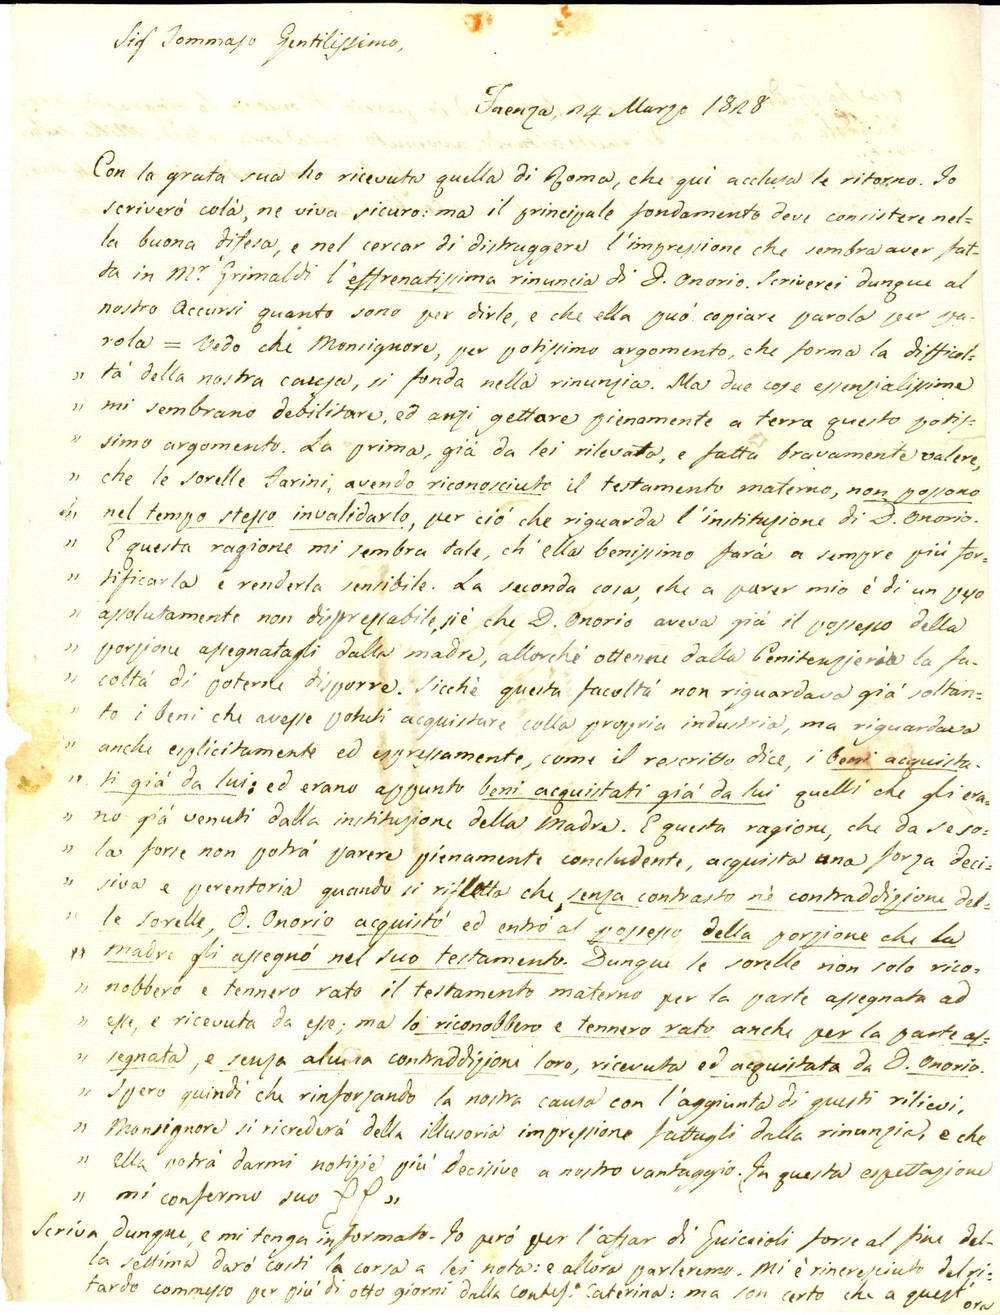 Sig.r Tommaso Gentilissimo,
Faenza, 24 Marzo 1828
Con la grata sua ho ricevuta quella di Roma, che qui acclusa le ritorno. Io
scriverò colà, ne viva sicuro: ma il principale fondamento deve consistere nel=
la buona difesa, e nel cercar di distruggere l'impressione che sembra aver fat=
ta in M.r Grimaldi l'effrenatissima rinuncia di D. Onorio. Scriverei dunque al
nostro Accursi quanto sono per dirle, e che ella può copiare parola per pa=
rola = Vedo che Monsignore, per potissimo argomento, che forma la difficol=
" tà della nostra causa, si fonda nella rinunzia. Ma due cose essenzialissime
" mi sembrano debilitare, ed anzi gettare pienamente a terra questo potis=
" simo argomento. La prima, già da lei rilevata, e fatta bravamente valere,
" che le sorelle Farini, avendo riconosciuto il testamento materno, non possono
" nel tempo stesso invalidarlo, per ciò che riguarda l'instituzione di D. Onorio.
" E questa ragione mi sembra tale, ch'ella benissimo farà a sempre più for=
" tificarla e renderla sensibile. La seconda cosa, che a parer mio è di un peso
" assolutamente non disprezzabile, si è che D. Onorio aveva già il possesso della
" porzione assegnatagli dalla madre, allorchè ottenne dalla Penitenzieria la fa=
" coltà di poterne disporre. Sicchè questa facoltà non riguardava già soltan=
" to i beni che avesse potuti acquistare colla propria industria, ma riguardava
" anche esplicitamente ed espressamente, come il rescritto dice, i beni acquista=
" ti già da lui; ed erano appunto beni acquistati già da lui quelli che gli era=
" no già venuti dalla instituzione della Madre. E questa ragione, che da se so=
" la forse non potrà parere pienamente concludente, acquista una forza deci=
" siva e perentoria quando si rifletta che, senza contrasto nè contraddizione del=
" le sorelle, D. Onorio acquistò ed entrò al possesso della porzione che la
" madre gli assegnò nel suo testamento. Dunque le sorelle non solo rico=
" nobbero e tennero rato il testamento materno per la parte assegnata ad
" esse, e ricevuta da esse; ma lo riconobbero e tennero rato anche per la parte as=
" segnata, e senza alcuna contraddizione loro, ricevuta ed acquistata da D. Onorio.
" Spero quindi che rinforzando la nostra causa con l'aggiunta di questi rilievi,
" Monsignore si ricrederà della illusoria impressione fattagli dalla rinunzia, e che
" ella potrà darmi notizie più decisive a nostro vantaggio. In questa espettazione
" mi confermo suo "
Scriva dunque, e mi tenga informato. Io però per l'affar di Guiccioli forse al fine del=
la settima darò costì la corsa a lei nota: e allora parleremo. Mi è rincresciuto del ri=
tardo commesso per più di otto giorni dalla Contes.a Caterina: ma son certo che a quest'ora